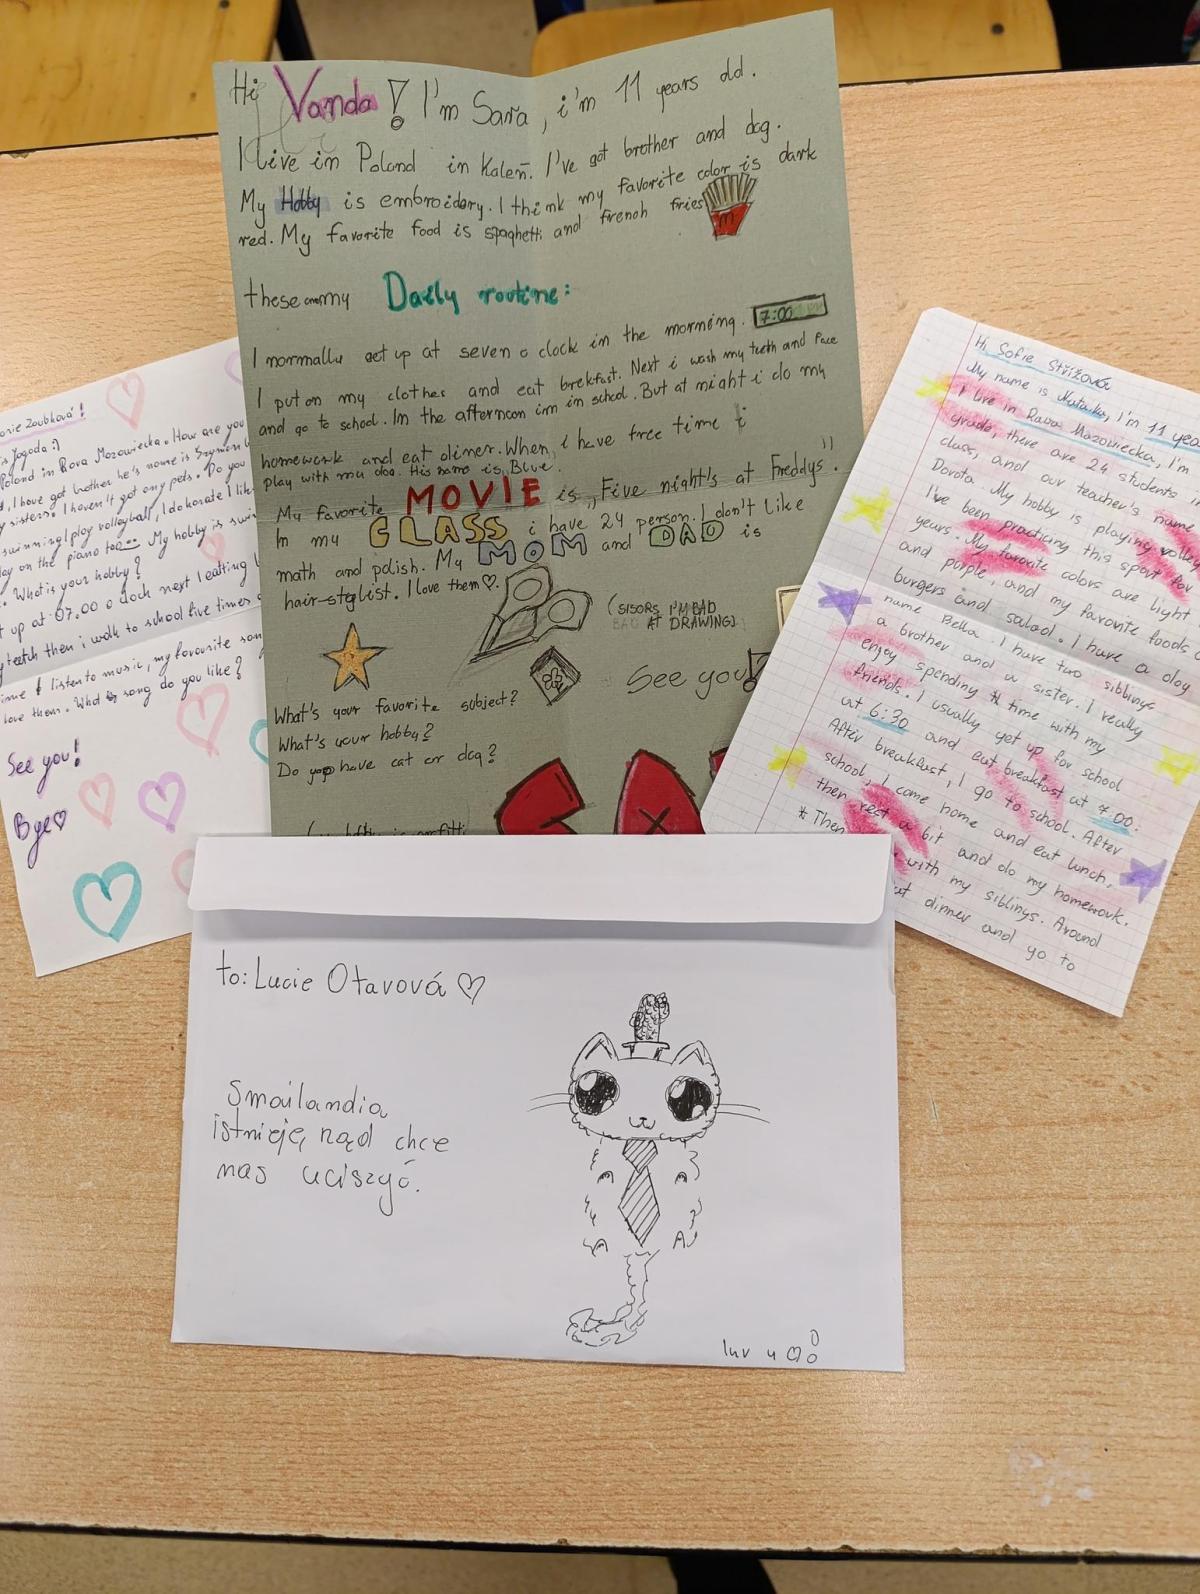 Hi Vanda! I'm Sara, i'm 11 years old.
I live in Poland in Kaleń. I've got brother and dog.
My Hobby is embroidery. I think my favorite color is dark
red. My favorite food is spaghetti and french fries
these are my Daily routine:
I normally get up at seven o clock in the morning. 7:00
I put on my clothes and eat brekfast. Next i wash my teeth and face
and go to school. In the afternoon im in school. But at night i do my
homework and eat diner. When i have free time i
play with my dog. His name is Blue.
My favorite MOVIE is „Five night's at Freddys".
In my CLASS i have 24 person. I don't like
math and polish. My MOM and DAD is
hair-stylist. I love them♡.
(SISORS I'M BAD
AT DRAWING)
See you!
What's your favorite subject?
What's your hobby?
Do you have cat or dog?
orie Zoubková!
is Jagoda:)
Poland in Rava Mazowiecka. How are you
I have got brother he's name is Szymon
sisters. I haven't got any pets. Do you
swimming I play volleyball, I do karate I like
lay on the piano too My hobby is swi
What is your hobby?
t up at 07.00 o clock next I eating
teeth then i walk to school five times
ime I listen to music, my favourite son
love them. What song do you like?
See you!
Bye♡
Hi Sofie Střížová
My name is Natalka, I'm 11 yea
I live in Rawa Mazowiecka, I'm
grade, there are 24 students
class, and our teacher's name
Dorota. My hobby is playing volley
I've been practicing this sport for
years. My favorite colors are light
and purple, and my favorite foods
burgers and salad. I have a dog
name Bella. I have two siblings
a brother and a sister. I really
enjoy spending time with my
friends. I usually get up for school
at 6:30 and eat breakfast at 7:00.
After breakfast, I go to school. After
school, I come home and eat lunch,
then rest a bit and do my homework.
* Then with my siblings. Around
dinner and go to
to: Lucie Otavová ♡
Smailandia
istnieje, rząd chce
nas uciszyć.
luv u ♡